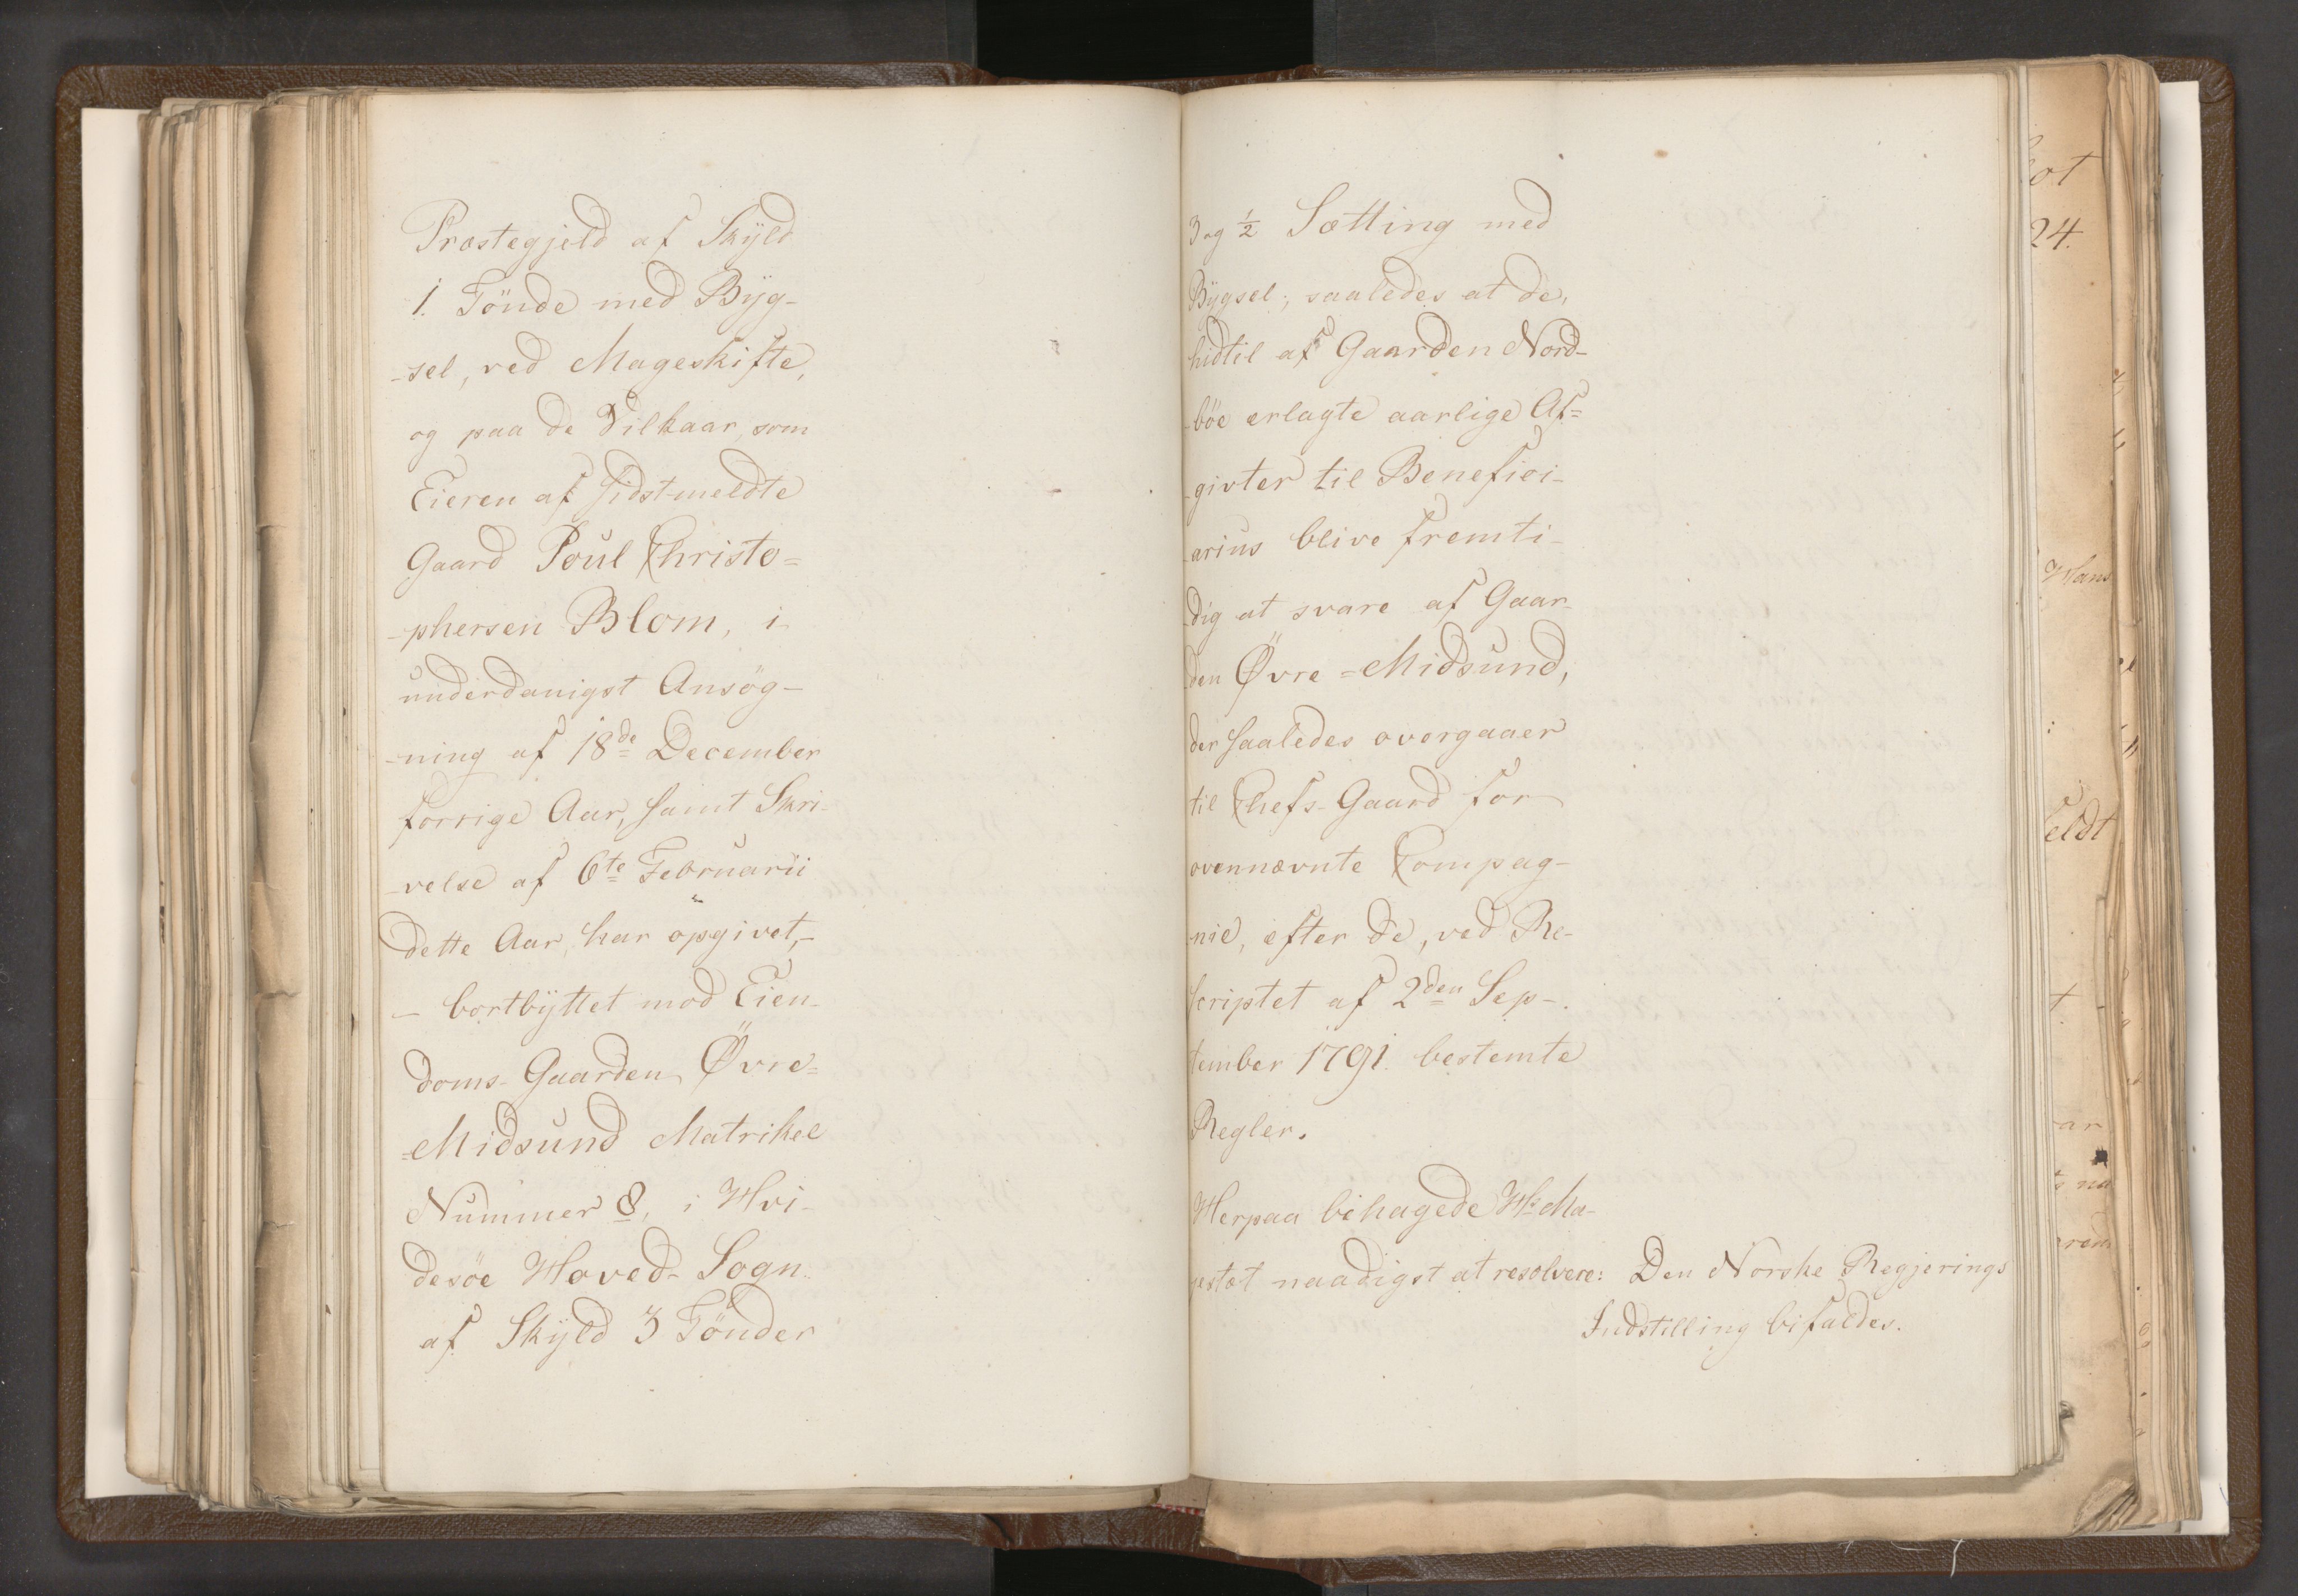 Præstegjeld af Skÿld
1. Tönde med Bÿg-
-sel, ved Mageskifte,
og paa de Vilkaar, som
Eieren af sidst-meldte
Gaard Poul Christo=
-phersen Blom, i
underdanigst Ansög-
-ning af 18de December
forrige Aar, samt Skri-
-velse af 6te Februarii
dette Aar, har opgivet,-
- bortbÿttet mod Eien-
doms-Gaarden Övre=
=Midsund Matrikel
Nummer 8, i Hvi-
desöe Hoved-Sogn.
af Skÿld 3 Tönder
3 og 1/2 Sætting med
Bÿgsel; saaledes at de,
hidtil af Gaarden Nord-
-böe erlagte aarlige Af=
-givter til Benefici-
arius blive fremti-
-dig at svare af Gaar-
-den Övre=Midsund,
der saaledes overgaaer
til Chefs-Gaard for
ovennævnte Compag-
-nie, efter de, ved Re-
scriptet af 2den Sep-
tember 1791. bestemte
Regler.
Herpaa behagede Hs Ma-
jestæt naadigst at resolvere: Den Norske Regjerings
Indstilling bifaldes.
ot
24.
Hans
eldt
ar
na